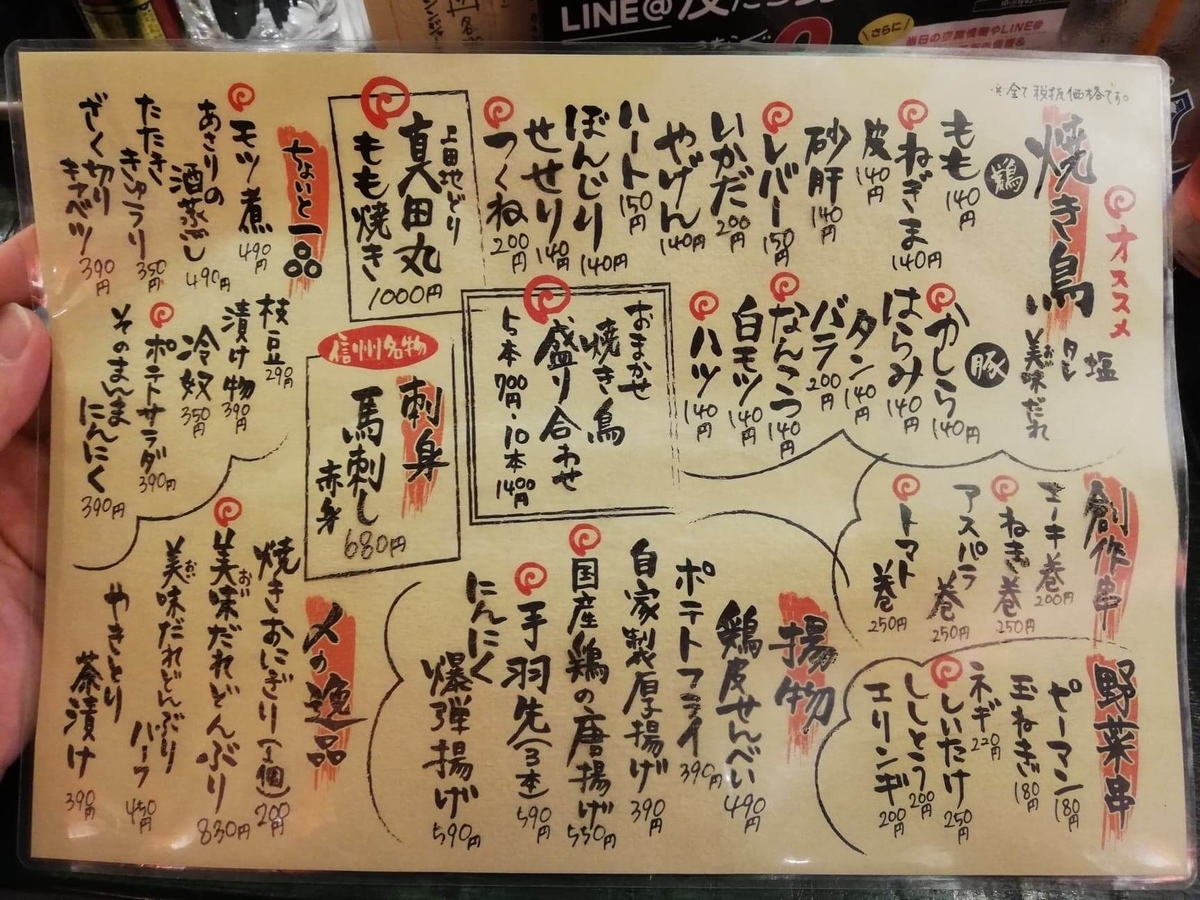 LINE@
さらに
当日の空席情報やLINE@
※全て税抜価格です。
オススメ
焼き鳥
塩
タレ
美味だれ
おい
鶏
もも 140円
ねぎま 140円
皮 140円
砂肝 140円
レバー 150円
いかだ 200円
やげん 140円
ハート 150円
ぼんじり 140円
せせり 140円
つくね 200円
豚
かしら 140円
はらみ 140円
タン 140円
バラ 200円
なんこつ 140円
白モツ 140円
ハツ 140円
おまかせ
焼き鳥
盛り合わせ
5本700円・10本1400円
上田地どり
真田丸
もも焼き
1000円
信州名物
刺身
馬刺し
赤身
680円
ちょいと一品
モツ煮 490円
あさりの
酒蒸し 490円
たたき
きゅうり 350円
ざく切り
キャベツ 390円
枝豆 290円
漬け物 390円
冷奴 350円
ポテトサラダ 390円
そのまんま
にんにく 390円
創作串
エーキ巻 200円
ねぎ巻 250円
アスパラ巻 250円
トマト巻 250円
野菜串
ピーマン 180円
玉ねぎ 180円
ネギ 220円
しいたけ 250円
ししとう 200円
エリンギ 200円
揚物
鶏皮せんべい 490円
ポテトフライ 390円
自家製厚揚げ 390円
国産鶏の唐揚げ 550円
手羽先(3本) 590円
にんにく
爆弾揚げ 590円
〆の逸品
焼きおにぎり(1個) 200円
美味だれどんぶり 830円
おい
美味だれどんぶり
おい
ハーフ 450円
やきとり
茶漬け 390円